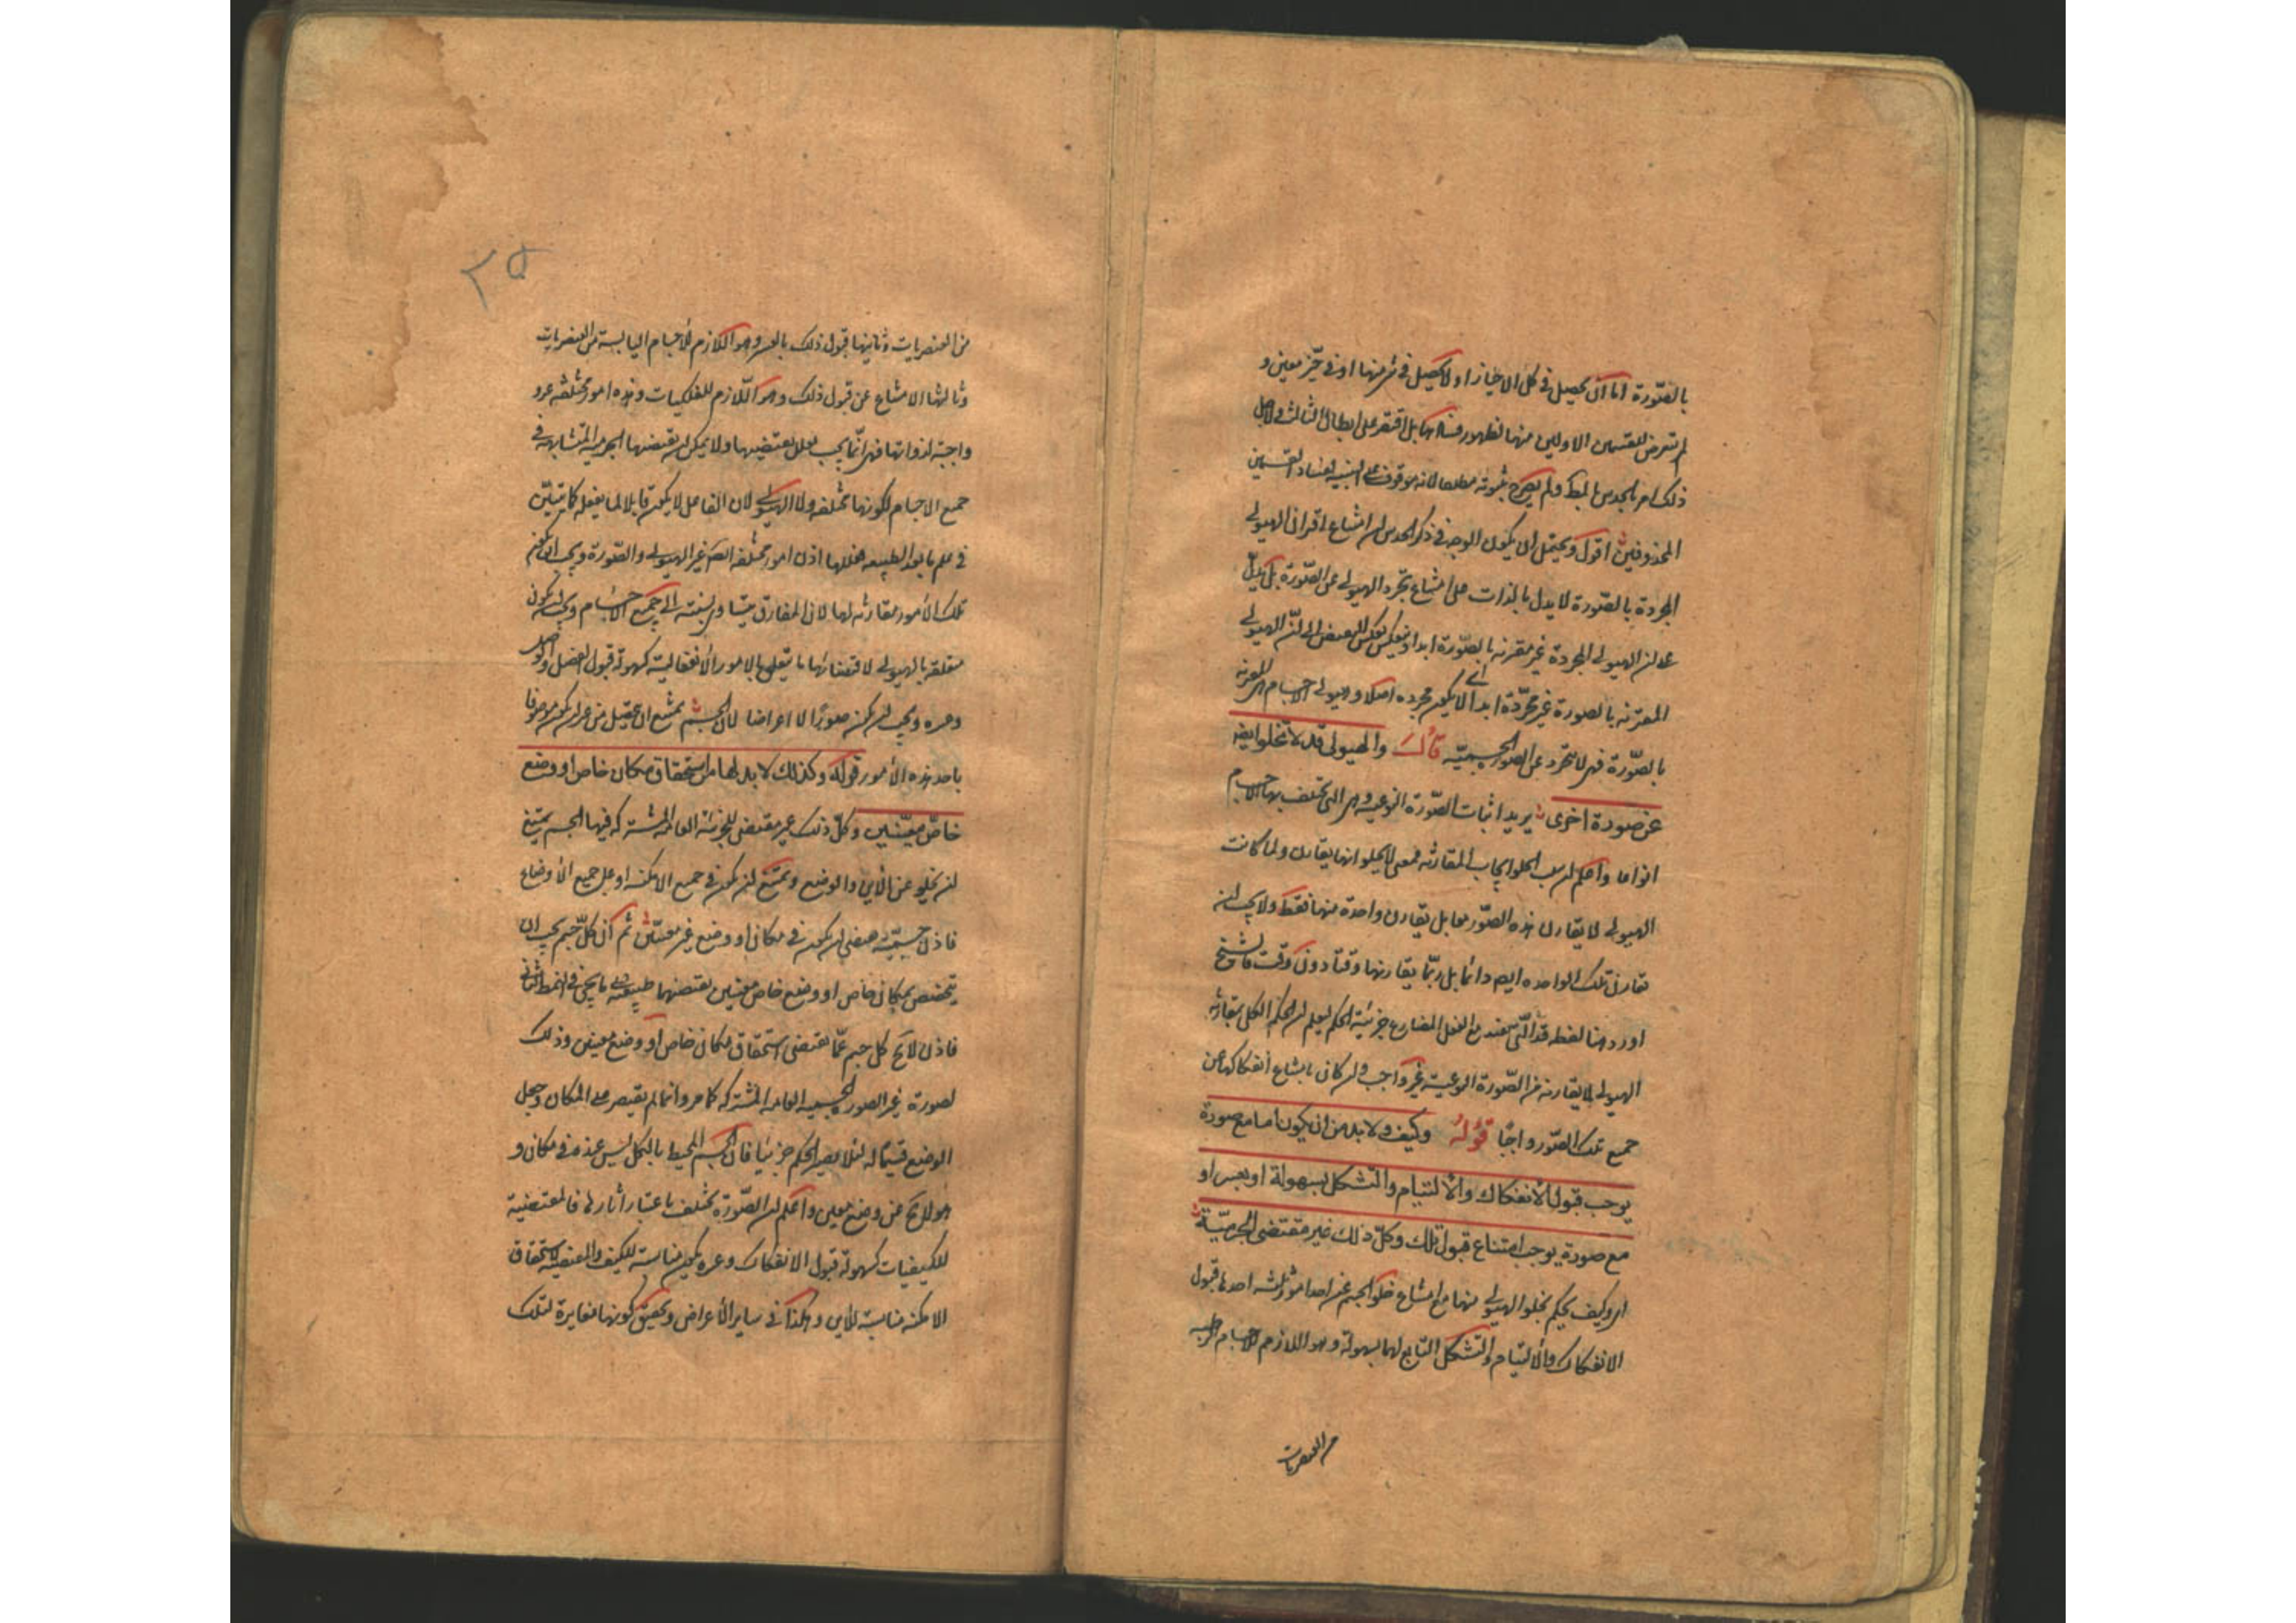 بالصّورة امّا ان يحصل فى كل الاحياز او لا يحصل فى شئ منها او فى حيّز معين و
لم يتعرض للقسمين الاولين منها لظهور فسادهما بل اقتصر على ابطال الثالث
ذلك امر بالحدس ولم يصرح بثبوته مطلقا لانه موقوف على التنبيه لفساد القسمين
المحذوفين اقول ويحتمل ان يكون الوجه فى ذكر الحدس ان امتناع اقتران الهيولى
المجردة بالصّورة لا يدل بالذات على امتناع تجرد الهيولى عن الصّورة بل يدل
على ان الهيولى المجردة غير مقترنه بالصّورة ابدا وينعكس بعكس النقيض الى ان الهيولى
المقترنه بالصورة غير مجرّدة ابدا اى لا يكون مجرده اصلا وهيولى الاجسام هى المقترنه
بالصّورة فهى لا تتجرد عن الصورة الجسميّه قال والهيولى قد لا تخلو ايضا
عن صورة اخرى يريد اثبات الصّورة النوعيه وهى التى تختلف بها الاجسام
انواعا واعلم ان سلب الخلو ايجاب المقارنه فمعنى لا يخلو انها يقارن ولما كانت
الهيولى لا يقارن هذه الصّور معا بل يقارن واحدة منها فقط ولا يجب ان
تقارن تلك الواحده ايضا دائما بل ربّما يقارنها وقتا دون وقت فالشيخ
اورد هنا لفظه قد الّتى تفيد مع الفعل المضارع جزئية الحكم ليعلم ان الحكم الكلى بمقارنة
الهيولى لما يقارنه من الصّورة النوعية غير واجب وان كان امتناع انفكاكها عن
جميع تلك الصّور واجبا قوله وكيف ولا بد من ان يكون اما مع صورة
يوجب قبول الانفكاك والالتيام والتشكل بسهولة او بعسر او
مع صورة يوجب امتناع قبول تلك وكلّ ذلك غير مقتضى الجرميّة
اى وكيف يحكم بخلو الهيولى عنها مع امتناع خلو الجسم عن احد امور ثلثه احدها قبول
الانفكاك والالتيام والتشكل التابع لهما بسهولة وهو اللازم للاجسام الرطبه
من العنصريات
٢٥
من العنصريات وثانيها قبول ذلك بالعسر وهو اللازم للاجسام اليابسة من العنصريات
وثالثها الامتناع عن قبول ذلك وهو اللّازم للفلكيات وهذه امور مختلفه غير
واجبة لذواتها فهى انّما يجب لعلل يقتضيها ولا يمكن ان يقتضيها الجرميه المتشابهه فى
جميع الاجسام لكونها مختلفه ولا الهيولى لان الفاعل لا يكون قابلا لما يفعله كما تبيّن
فى علم ما بعد الطبيعه فعللها اذن امور مختلفه ايضا غير الهيولى والصّورة ويجب ان يكون
تلك الأمور مقارنه لها لان المفارق يتساوى نسبته الى جميع الاجسام ويجب ان يكون
متعلقه بالهيولى لاقتضائها ما يتعلق بالامور الانفعالية كسهولة قبول الفصل والوصل
وعسره ويجب ان يكون صورًا لا اعراضا لان الجسم يمتنع ان يحصل من غير ان يكون موصوفا
باحد هذه الأمور قوله وكذلك لا بد لها من استحقاق مكان خاص او وضع
خاصّ معيّنين وكلّ ذلك غير مقتضى للجرميّة العامة المشتركة فيها الجسم يمتنع
ان يخلو عن الأين والوضع ويمتنع ان يكون فى جميع الامكنه او على جميع الأوضاع
فاذن جسميّته يقتضى ان يكون فى مكان او وضع غير معيّن ثم ان كلّ جسم يجب ان
يتخصّص بمكان خاص او وضع خاص معينين يقتضيهما طبيعته على ما يجئ فى النمط الثانى
فاذن لا يخ كل جسم عمّا يقتضى استحقاق مكان خاص او وضع معينين وذلك
لصورة غير الصوره الجسميه العامه المشتركه كما مر وانما لم يقتصر على المكان وجعل
الوضع قسيمًا له لئلا يصير الحكم جزئيا فان الجسم المحيط بالكل ليس عنده فى مكان و
هو لا يخ عن وضع معين واعلم ان الصّورة تختلف باعتبار اثارها فالمقتضية
للكيفيات كسهولة قبول الانفكاك وعسره يكون مناسبة للكيف والمقتضيه لاستحقاق
الامكنه مناسبة للأين وهكذا فى ساير الأعراض وتحقيق كونها مغايرة لتلك